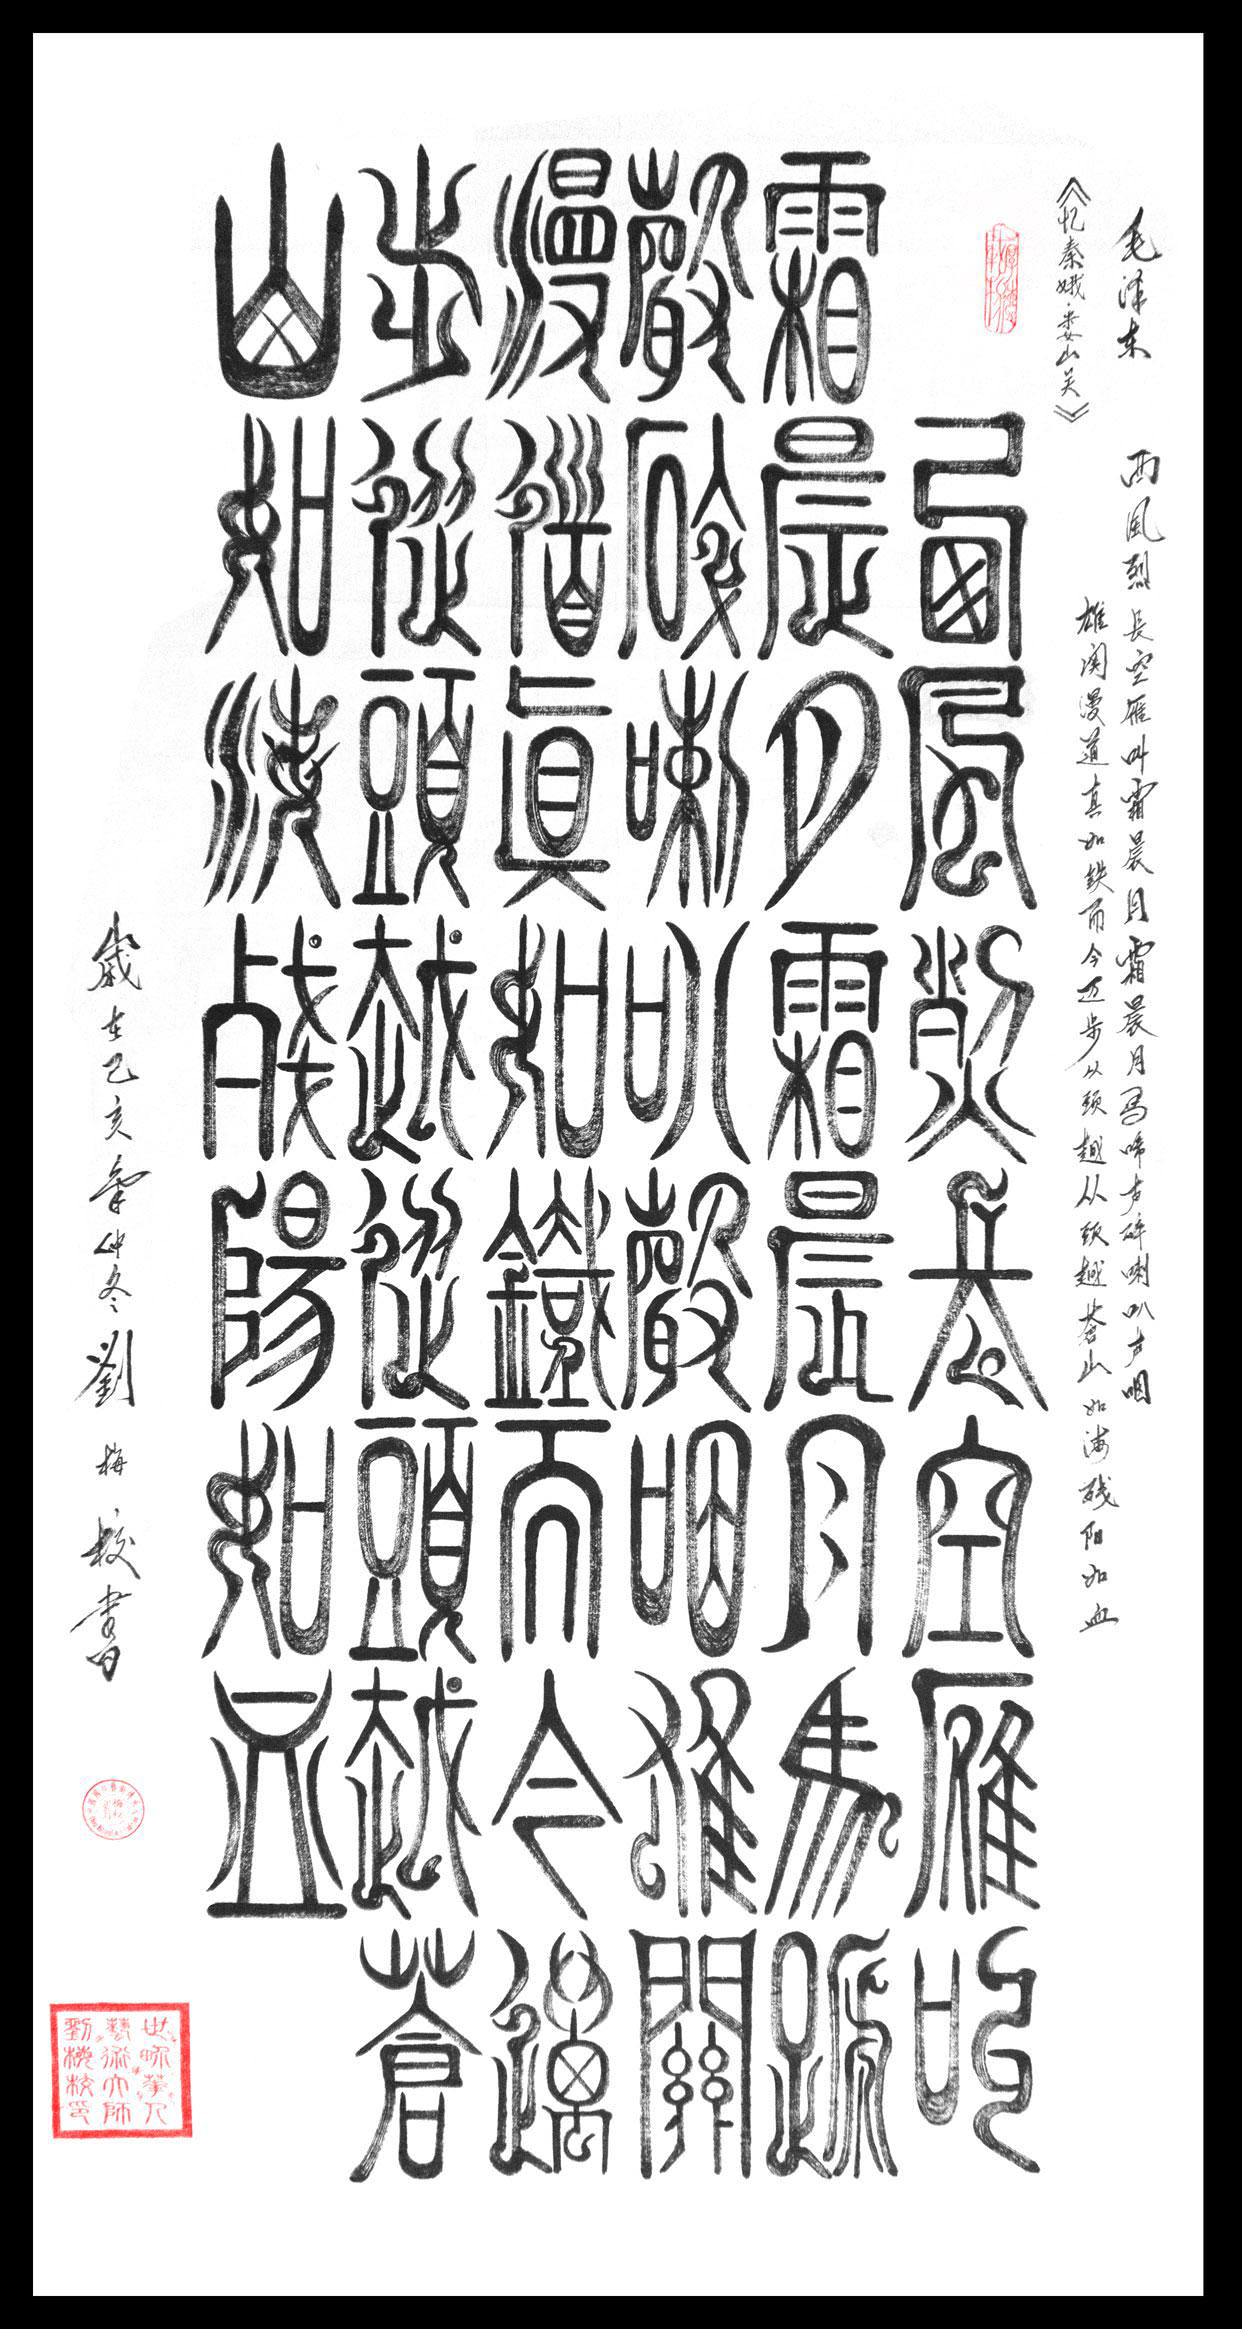 毛泽东
西风烈长空雁叫霜晨月霜晨月马啼声碎喇叭声咽
《忆秦娥·娄山关》
雄关漫道真如铁而今迈步从头越从头越苍山如海残阳如血
西風烈長空雁叫
霜晨月霜晨月馬蹄
聲碎喇叭聲咽雄關
漫道眞如鐵而今邁
步從頭越從頭越蒼
山如海殘陽如血
歲在己亥年仲冬劉梅校書
世界華人
藝術大師
劉梅校印